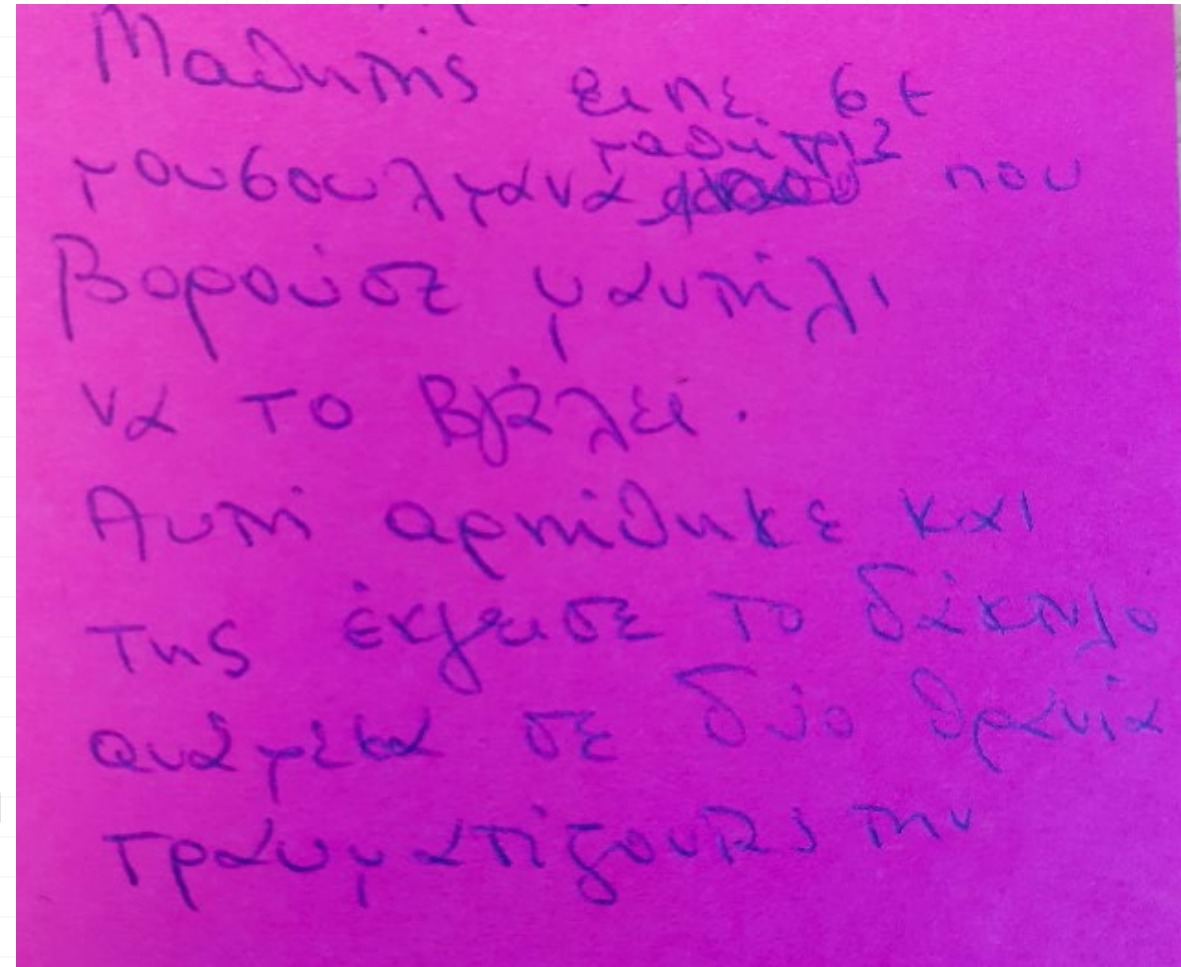 Μαθητής είπε σε
μαθήτρια
μουσουλμάνα που
φορούσε μαντήλι
να το βγάλει.
Αυτή αρνήθηκε και
της έκλεισε το δάκτυλο
ανάμεσα σε δύο θρανία
τραυματίζοντάς την